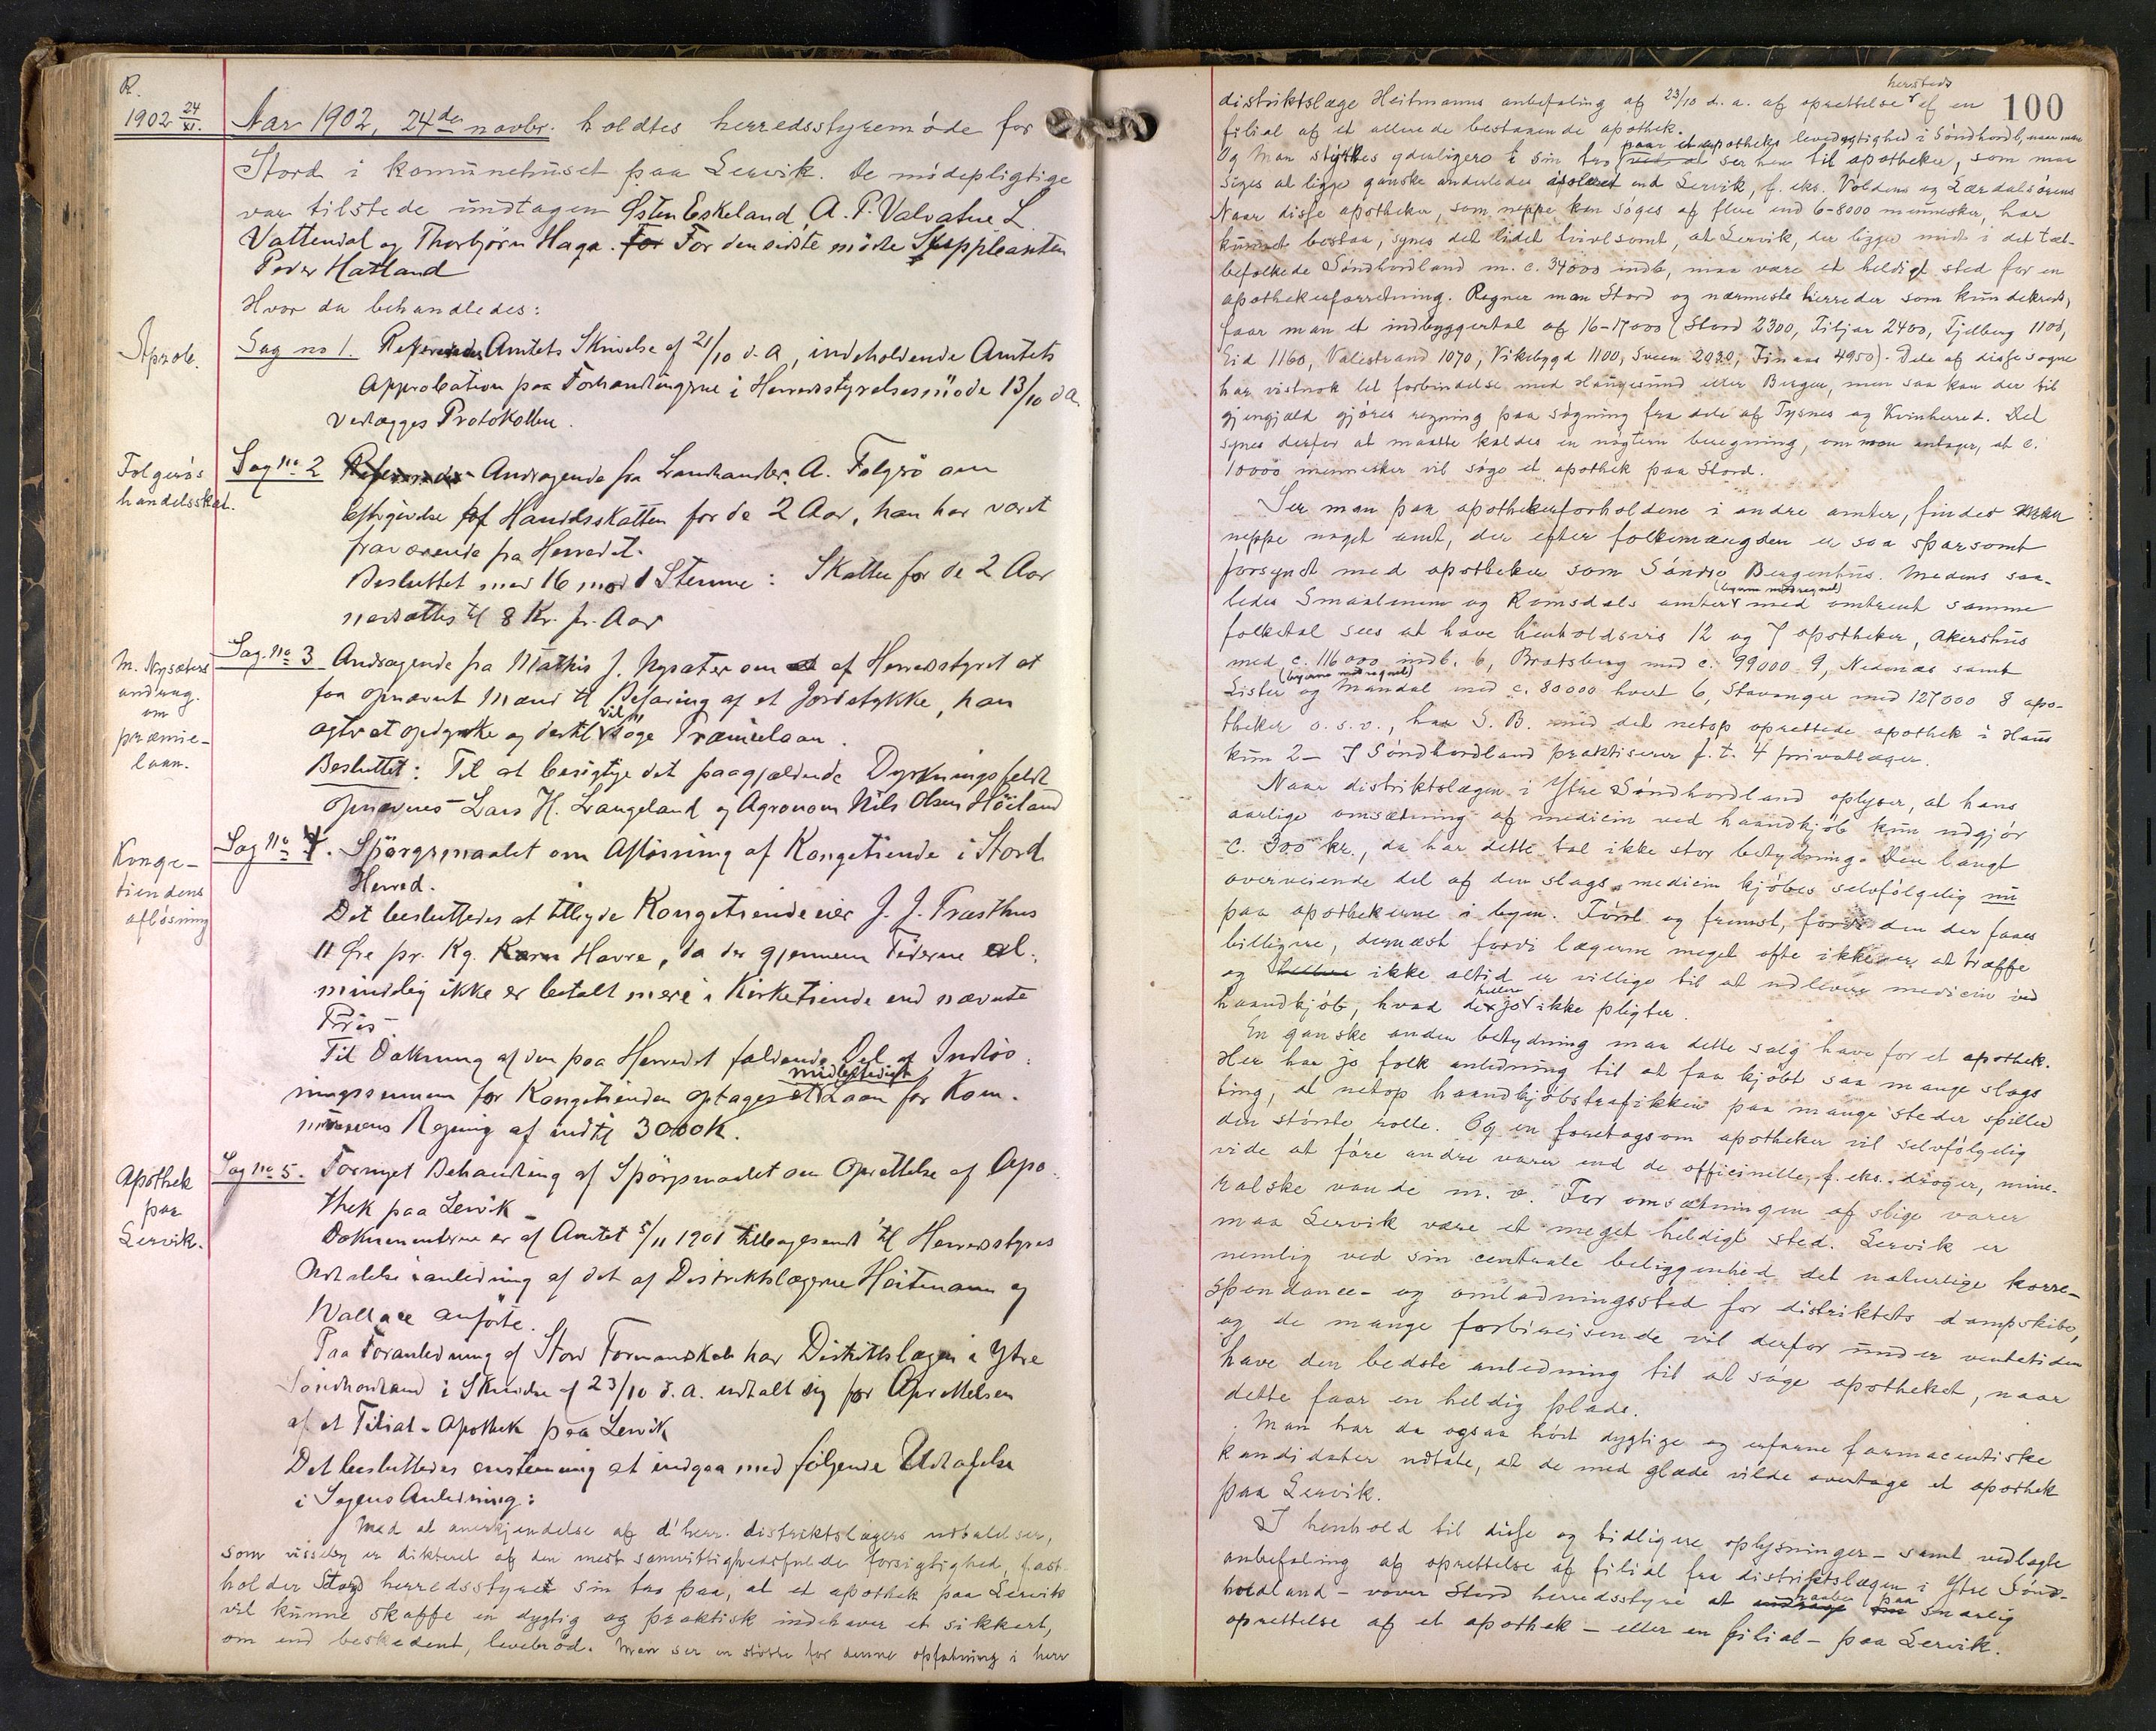 R.
1902 24/XI.
Aar 1902, 24de novbr. holdtes herredsstyremøde for
Stord i komünehüset paa Lervik. De mødepligtige
var tilstede undtagen Østen Eskeland, A. P. Valvatne L.
Vattendal og Thorbjørn Haga. For For den sidste mødte Suppleanten
Peder Hatland
Hvor da behandledes:
Aprob.
Sag no 1. Refereredes Amtets Skrivelse af 21/10 d. A, indeholdende Amtets
Approbation paa Forhandlingerne i Herredsstyrelsesmøde 13/10 d A.
Vedlægges Protokollen.
Folgerøs
handelsskat.
Sag No 2 Refereredes Andragende fra Landhandler A. Folgerø om
Eftergivelse af Handelsskatten for de 2 Aar, han har været
fraværende fra Herredet.
Besluttet med 16 mod 1 Stemme: Skatten for de 2 Aar
nedsættes til 8 Kr. pr. Aar
M. Nysæters
andrag.
om
præmie-
laan.
Sag. No 3 Andragende fra Mathis J. Nysæter om at af Herredsstyret at
faa opnævnt Mænd til Befaring af et Jordstykke, han
agter at opdyrke og dertil vil søge Præmielaan.
Besluttet: Til at besigtige det paagjældende Dyrkningsfeldt
opnævnes Lars H. Langeland og Agronom Nils Olsen Høiland
Konge-
tiendens
afløsning
Sag No 4. Spørgsmaalet om Afløsning af Kongetiende i Stord
Herred.
Det besluttedes at tilbyde Kongetiendeeier J. J. Træsthus
11 Øre pr. Kg. Korn Havre, da der gjennem Tiderne al-
mindelig ikke er betalt mere i Kirketiende end nævnte
Pris
Til Dækning af den paa Herredet faldende Del af Indløs-
ningssummen for Kongetienden optages et midlertidigt Laan for Kom-
munens Regning af indtil 3000 K.
Apothek
paa
Lervik.
Sag No 5. Fornyet Behandling af Spörgsmaalet om Oprettelse af Apo-
thek paa Lervik
Dokumenterne er af Amtet 5/11 1901 tilbagesendt til Herredsstyrets
Udtalelse i anledning af det af Distriktslægerne Heitmann og
Wallace anførte.
Paa Foranledning af Stord Formandskab har Distriktslægen i Ytre
Søndhordland i Skrivelse af 23/10 d. A. udtalt sig for Oprettelsen
af et Filial-Apothek paa Lervik
Det besluttedes enstemmig at indgaa med følgende Udtalelse
i Sagens Anledning:
Med al anerkjendelse af d'herr. distriktslægers udtalelser,
som visselig er dikteret af den mest samvittighedsfulde forsigtighed, fast-
holder Stord herredsstyret sin tro paa, at et apothek paa Lervik
vil kunne skaffe en dygtig og praktisk indehaver et sikkert,
om end beskedent, levebrød. Man ser en støtte for denne opfatning i herr
100
distriktslæge Heitmanns anbefaling af 23/10 d. a. af oprettelse hersteds af en
filial af et allerede bestaaende apothek.
Og man styrkes yderligere i sin tro paa et apotheks levedygtighed i Søndhordl., naar man ved at ser hen til apotheker, som maa
siges at ligge ganske anderledes isoleret end Lervik, f. eks. Voldens og Lærdalsørens
Naar disse apotheker, som neppe kan søges af flere end 6-8000 mennesker, har
kunnet bestaa, synes det lidet tvivlsomt, at Lervik, der ligger midt i det tæt-
befolkede Søndhordland m. c. 34000 indb, maa være et heldigt sted for en
apothekerforretning. Regner man Stord og nærmeste herreder som kundekreds,
faar man et indbyggertal af 16-17000 (Stord 2300, Fitjar 2400, Fjelberg 1100,
Eid 1160, Valestrand 1070, Vikebygd 1100, Sveen 2020, Finaas 4950). Dele af disse sogne
har vistnok let forbindelse med Haugesund eller Bergen, men saa kan der til
gjengjæld gjøres regning paa søgning fra dele af Tysnes og Kvinherred. Det
synes derfor at maatte kaldes en nøgtern beregning, om man antager, at c.
10000 mennesker vil søge et apothek paa Stord.
Ser man paa apothekerforholdene i andre amter, findes man
neppe noget amt, der efter folkemængden er saa sparsomt
forsynet med apotheker som Søndre Bergenhus. Medens saa-
ledes Smaalenene og Romsdals amter (byerne medregnet) med omtrent samme
folketal sees at have henholdsvis 12 og 7 apotheker, Akershus
med c. 116000 indb. 6, Bratsberg med c. 99000 9, Nedenæs samt
Lister og Mandal (byerne medregnet) med c. 80000 hvert 6, Stavanger med 127000 8 apo-
theker o. s. v., har S. B. med det netop oprettede apothek i Haus
kun 2 – I Søndhordland praktiserer f. t. 4 privatlæger.
Naar distriktslægen i Ytre Søndhordland oplyser, at hans
aarlige omsætning af medicin ved haandkjøb kun udgjør
c. 300 kr., da har dette tal ikke stor betydning. Den langt
overveiende del af den slags medicin kjøbes selvfølgelig nu
paa apothekerne i byen. Først og fremst, fordi den der faaes
billigere, dernæst fordi lægerne meget ofte ikke er at træffe
og heller ikke altid er villige til at udlevere medicin ved
haandkjøb, hvad de jo heller ikke pligter.
En ganske anden betydning maa dette salg have for et apothek.
Her har jo folk anledning til at faa kjøbt saa mange slags
ting, at netop haandkjøbstrafikken paa mange steder spiller
den største rolle. Og en foretagsom apotheker vil selvfølgelig
vide at føre andre varer end de officinelle, f. eks. droger, mine-
ralske vande m. v. For omsætningen af slige varer
maa Lervik være et meget heldigt sted. Lervik er
nemlig ved sin centrale beliggenhed det naturlige korre-
spondance- og omladningssted for distriktets dampskibe,
og de mange forbireisende vil derfor under ventetiden
have den bedste anledning til at søge apotheket, naar
dette faar en heldig plads.
Man har da ogsaa hørt dygtige og erfarne farmaceutiske
kandidater udtale, at de med glæde vilde overtage et apothek
paa Lervik.
I henhold til disse og tidligere oplysninger – samt vedlagte
anbefaling af oprettelse af filial fra distriktslægen i Ytre Sønd-
hordland – vover Stord herredsstyre at andrage om haabe paa snarlig
oprettelse af et apothek – eller en filial – paa Lervik.